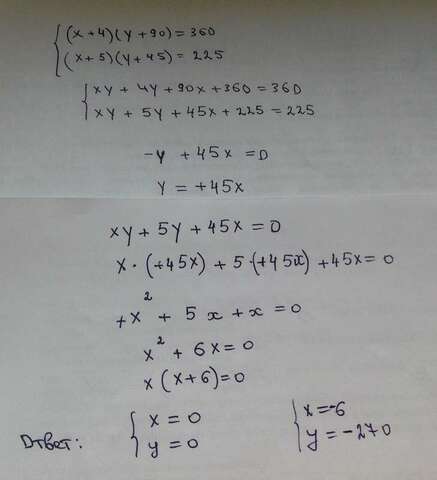 (x+4)(y+90)=360
(x+5)(y+45)=225
xy + 4y + 90x + 360 = 360
xy + 5y + 45x + 225 = 225
-y + 45x = 0
y = +45x
xy + 5y + 45x = 0
x · (+45x) + 5 · (+45x) + 45x = 0
+x² + 5x + x = 0
x² + 6x = 0
x(x+6) = 0
Ответ: x = 0 x = -6
y = 0 y = -270